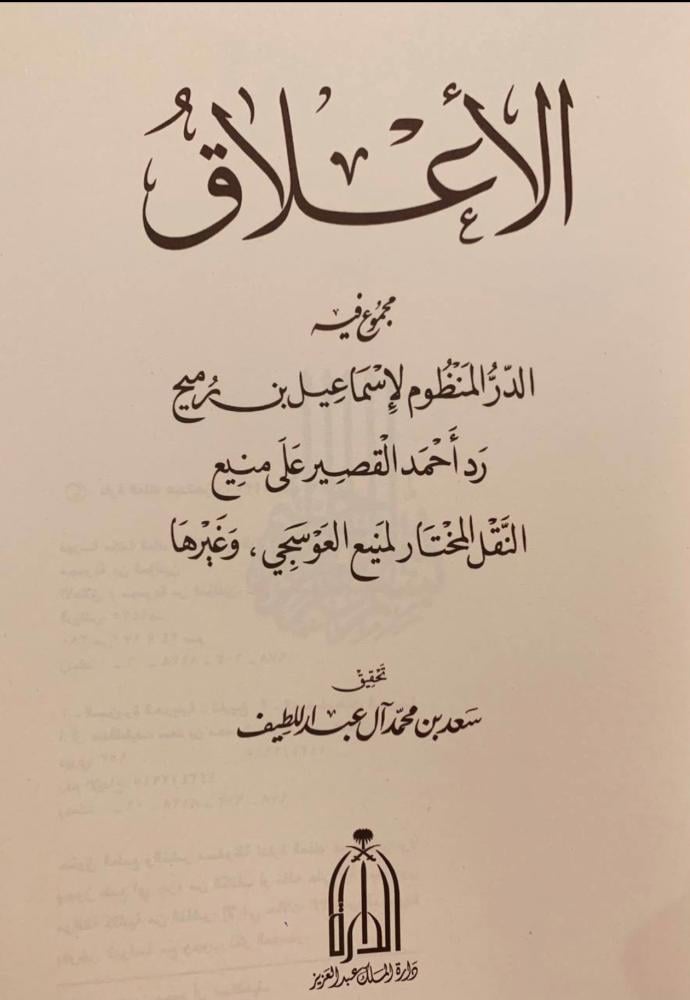 الأعلاقُ
مجموع فيه
الدّرُّ المَنظُوم لإِسْمَاعِيل بن رميح
رَد أَحْمَد القْصير عَلَى منيع
النَّقْل المختار لمنيع العَوْسَجي، وَغَيْرهَا
تَحقِيْق
سَعد بن محمّد آل عبد اللطيف
الدارة
دَارة الملك عبد العزيز